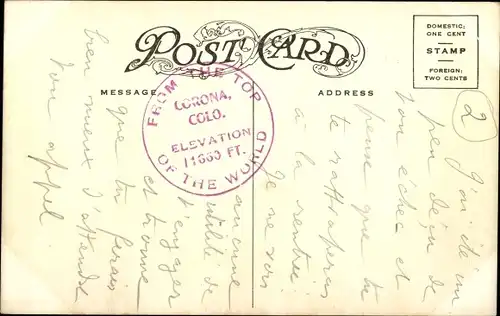 POST CARD
DOMESTIC:
ONE CENT
STAMP
FOREIGN:
TWO CENTS
MESSAGE
ADDRESS
FROM THE TOP
CORONA,
COLO.
ELEVATION
11660 FT.
OF THE WORLD
2
J'ai été un
peu déçu de
ton échec et
pense que tu
te rattraperas
à la rentrée.
Je ne vois
aucune
utilité de
t'engager
et trouve
que tu ferais
bien mieux d'attendre
ton appel.